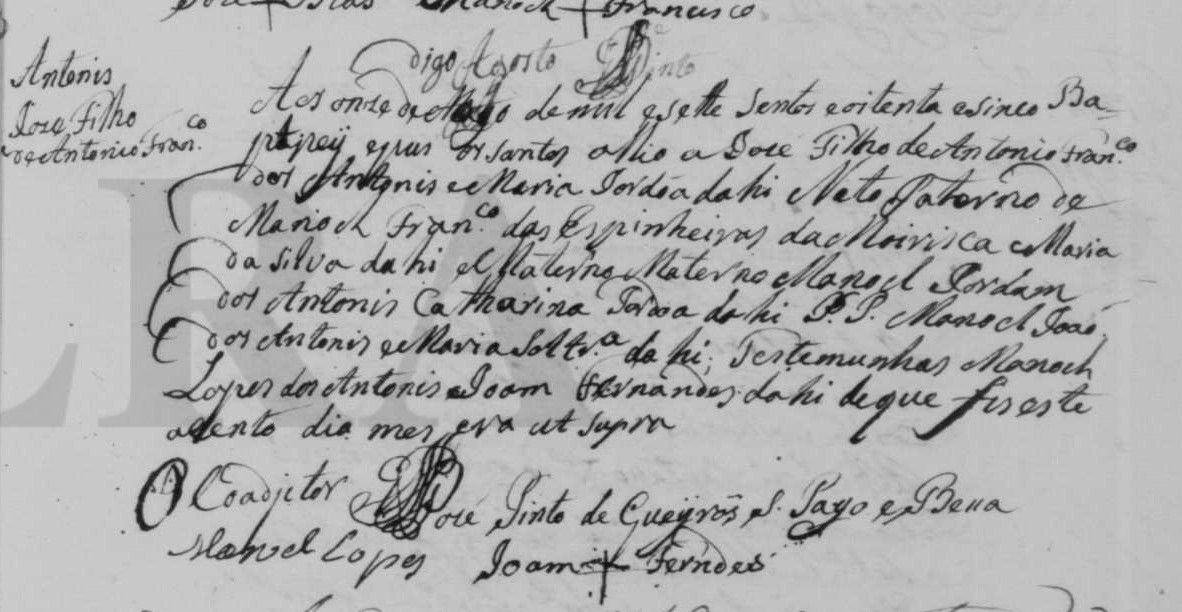 José + Brás Manoel + Francisco
Antonis
Jose Filho
de Antonio Fran.co
digo Agosto Pinto
Aos onze de Mayo de mil e sette Sentos e oitenta e sinco Ba-
ptizey e pus os santos ollio a José Filho de Antonio Fran.co
dos Antonis e Maria Jordôa da hi Neto Paterno de
Manoel Fran.co das Espinheiras da Moirisca e Maria
da Silva da hi e Materno Materno Manoel Jordam
dos Antonis Catharina Jordoa da hi P. P. Manoel Joaõ
dos Antonis e Maria Soltr.a da hi; Testemunhas Manoel
Lopes dos Antonis e Joam Fernandes da hi de que fis este
acento dia mes era ut supra
O Coadjitor José Pinto de Gueyrós S. Pago e Bena
Manoel Lopes Joam + Ferndes